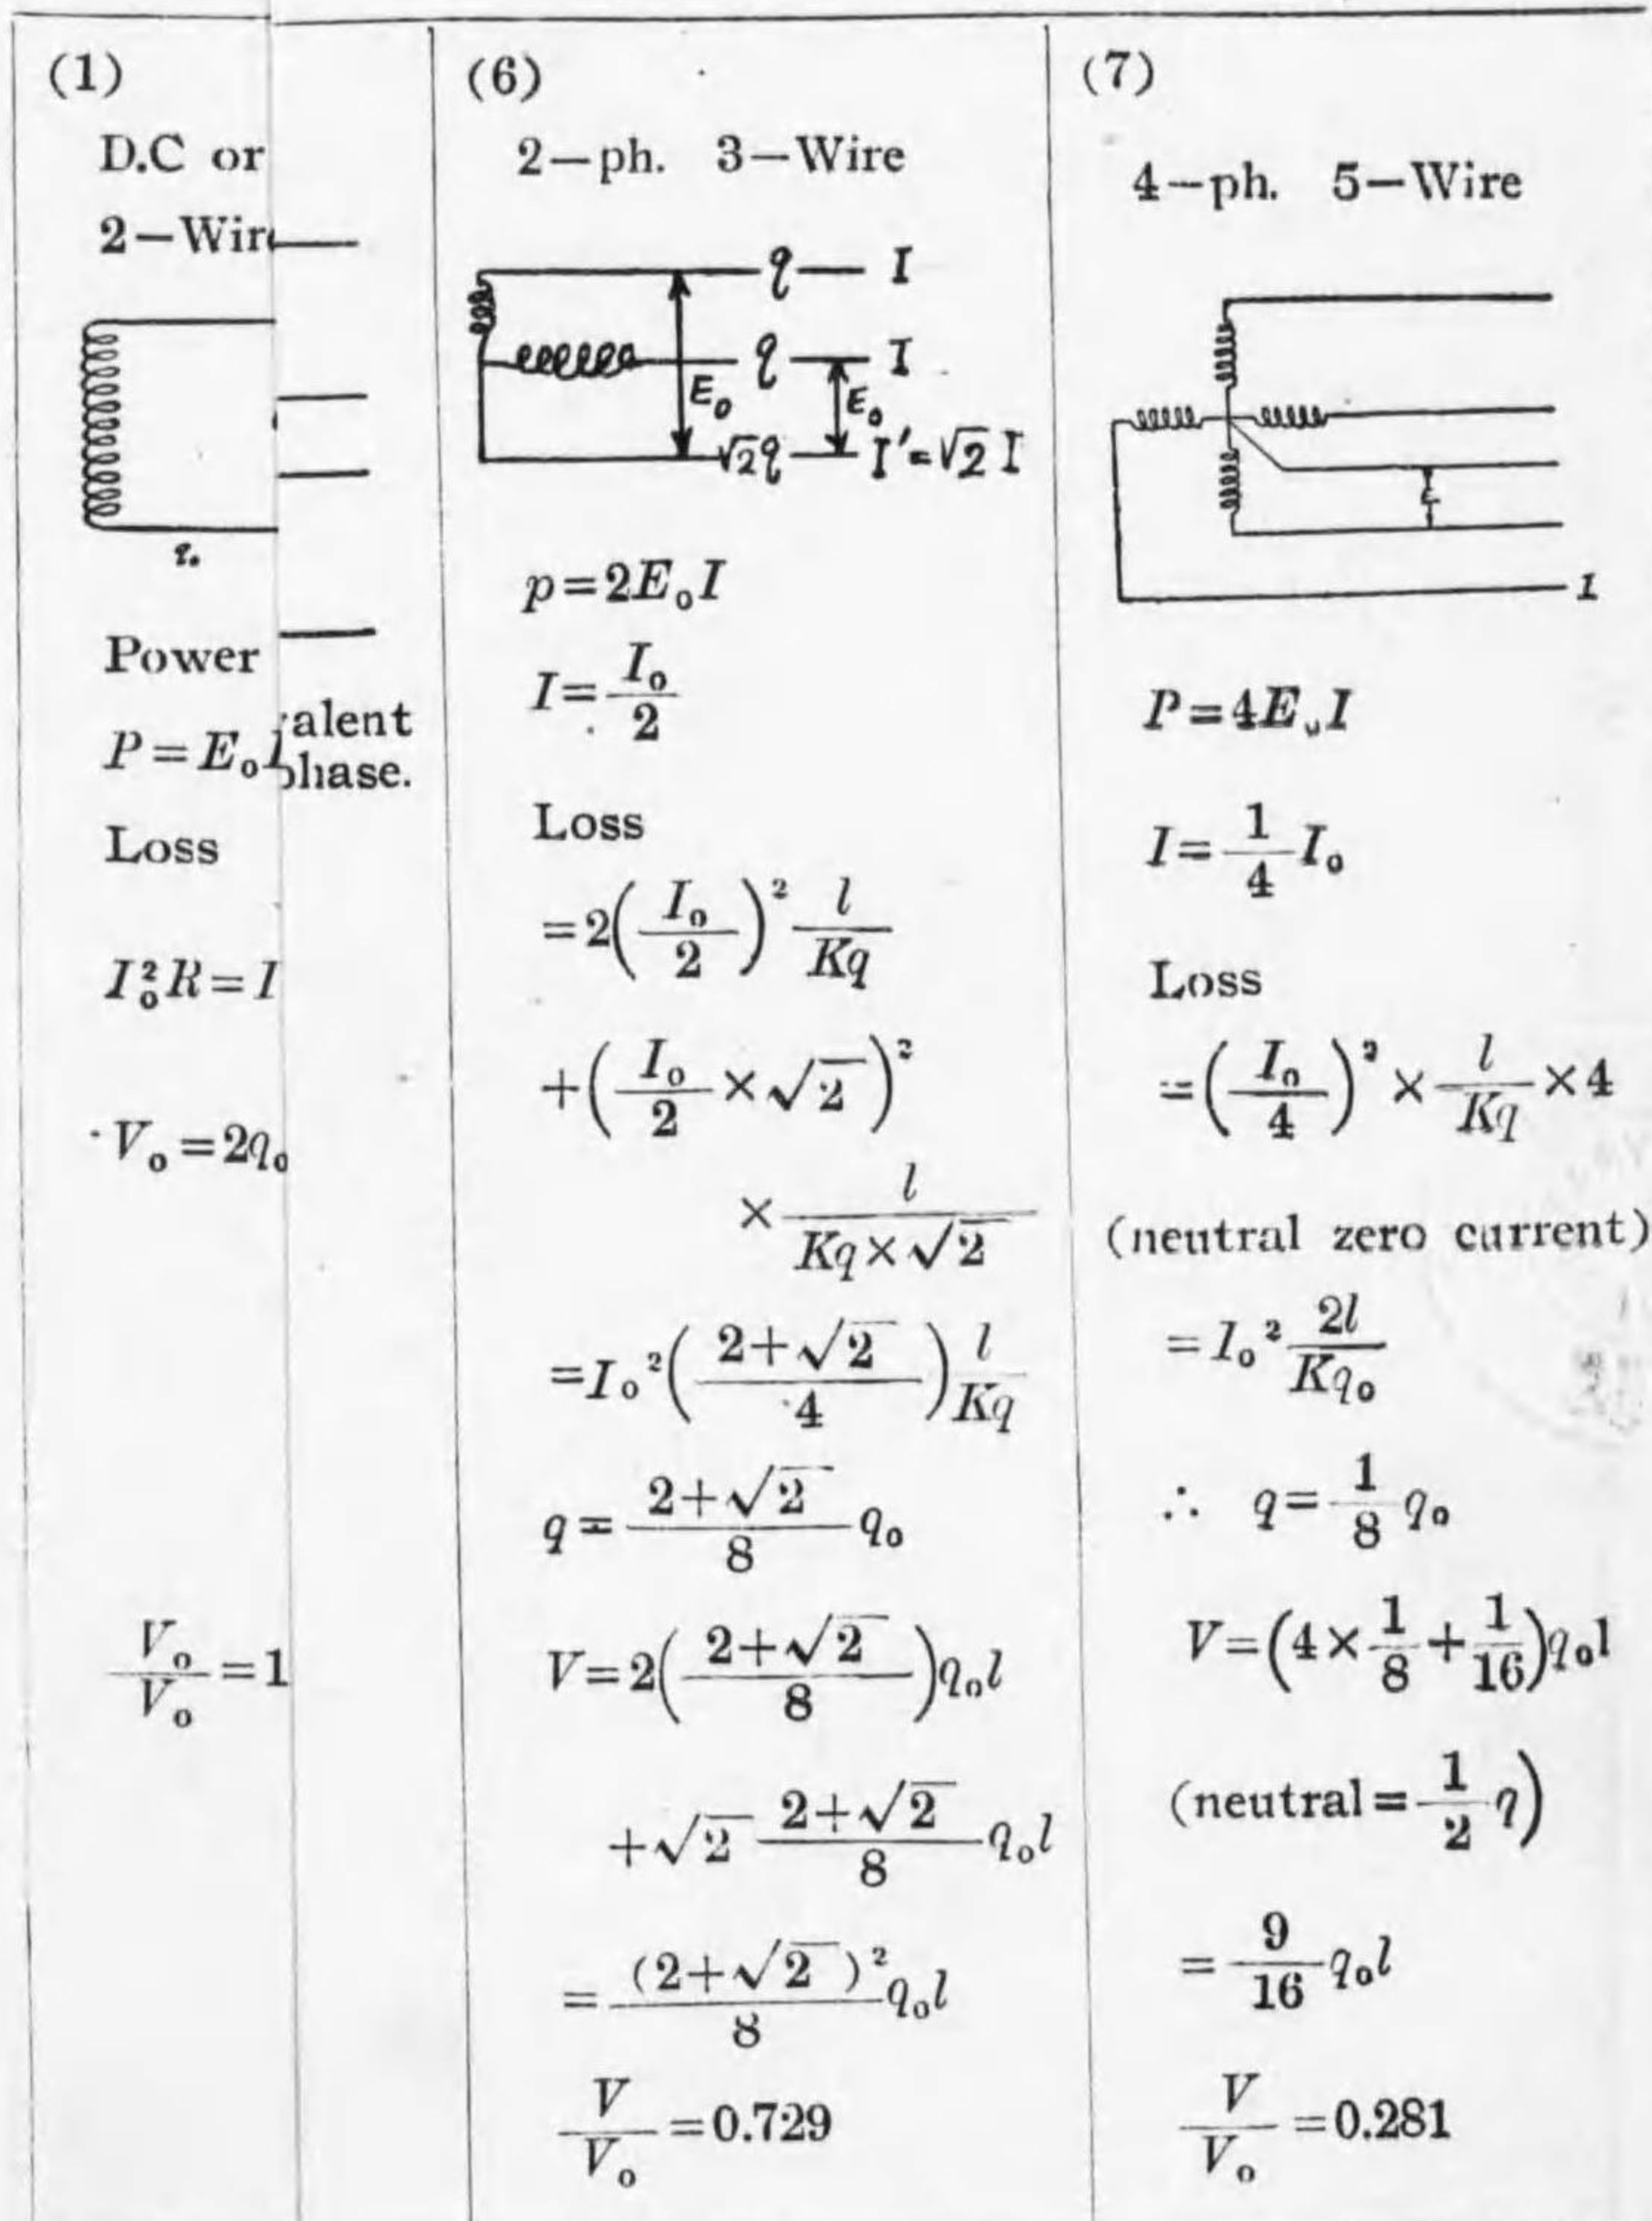 (1)
D.C or
2—Wir
q₀
Power
P=E₀I
Loss
I₀²R=I
V₀=2q₀
V₀/V₀=1
alent
phase.
(6)
2—ph. 3—Wire
q I
q I
E₀ E₀
√2q I'=√2 I
p=2E₀I
I=I₀/2
Loss
=2(I₀/2)² l/Kq
+(I₀/2×√2)²
×l/(Kq×√2)
=I₀²((2+√2)/4) l/Kq
q=(2+√2)/8 q₀
V=2((2+√2)/8)q₀l
+√2 (2+√2)/8 q₀l
=(2+√2)²/8 q₀l
V/V₀=0.729
(7)
4—ph. 5—Wire
I
P=4E₀I
I=1/4 I₀
Loss
=(I₀/4)²×l/Kq×4
(neutral zero current)
=I₀² 2l/Kq₀
∴ q=1/8 q₀
V=(4×1/8+1/16)q₀l
(neutral=1/2 q)
=9/16 q₀l
V/V₀=0.281